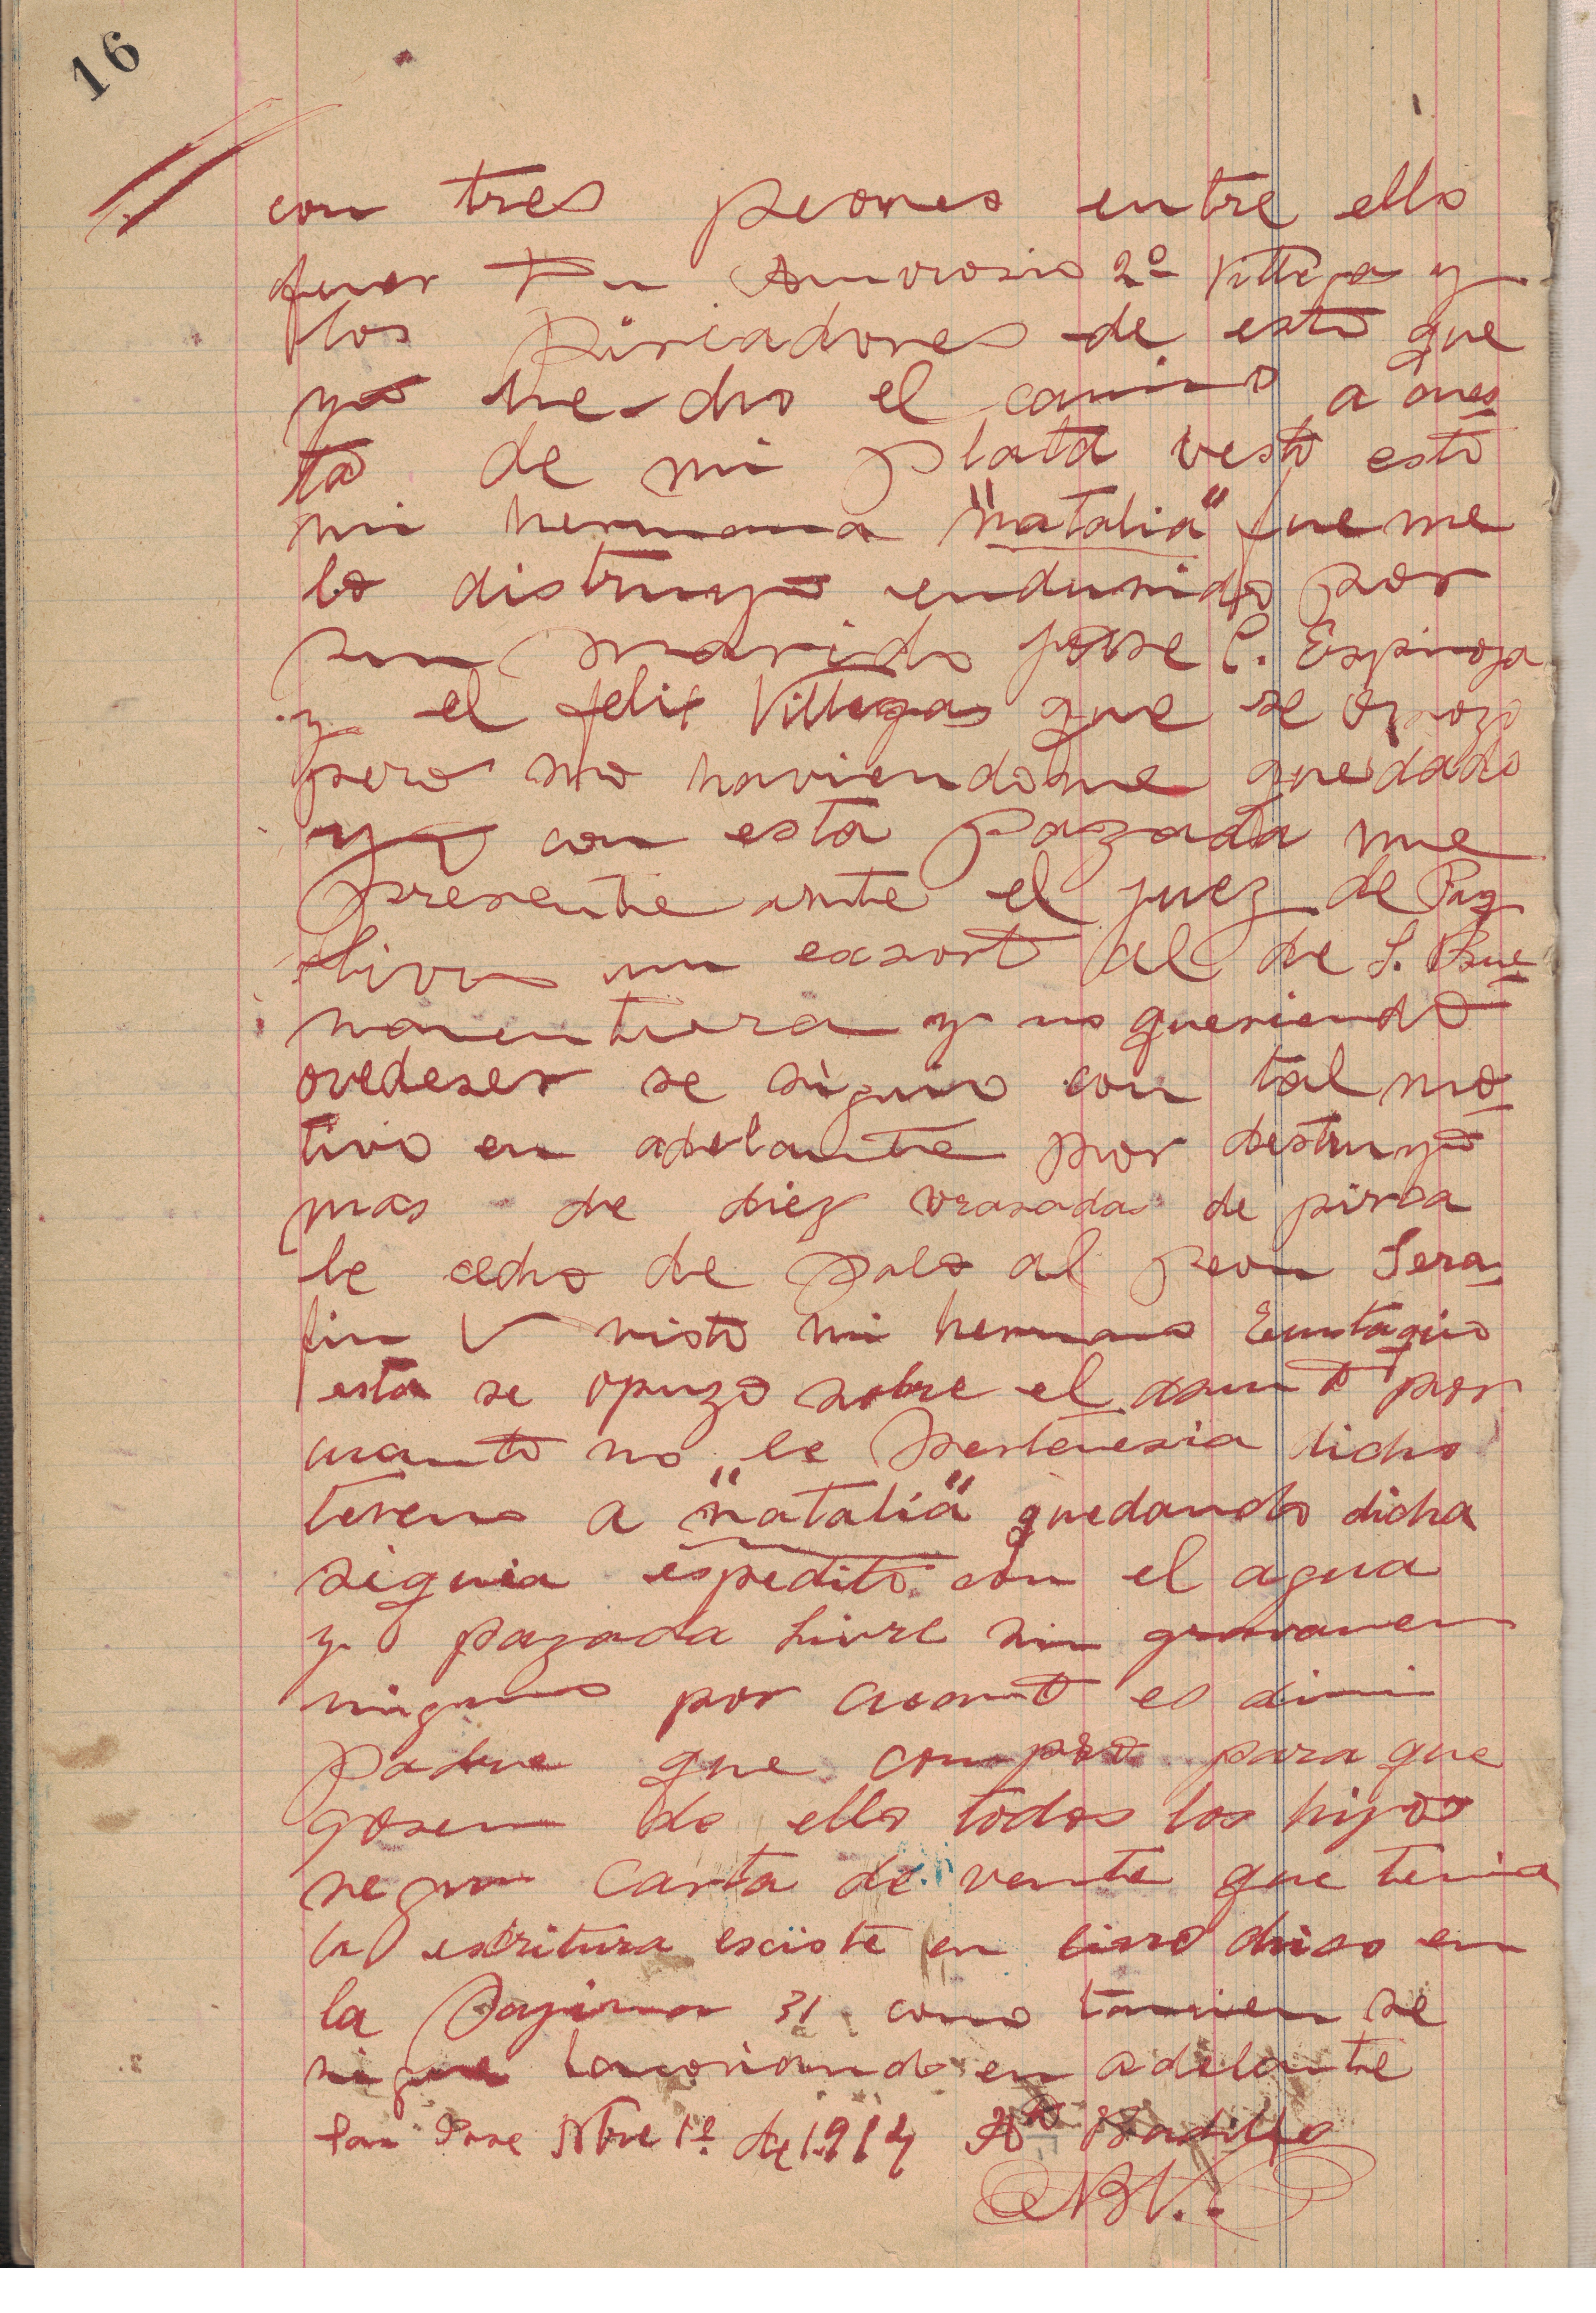 16
con tres peones entre ello
fuer Amvrosio 2º Villega y
los pircadores de esto que
yo he dho el camino a ques
ta de mi plata vesto esto
mi hermana "natalia" fue me
lo distruyo endusido por
sun marido José C. Espinoza
y el felix Villegas que se opozo
pero no haviendome quedado
yo con esta pazada me
presente ante el juez de Paz
livro un exsort al de S. Bue
naventura y no queriendo
ovedeser se siguio con tal mo
tivo en adelante por destruyo
mas de diez vrasadas de pirca
le echo de palo al peon Sera
fin V visto mi hermano Eustaqio
esta se opuzo sobre el asunto por
cuanto no le pertenesia dicho
tereno a "natalia" quedando dicha
siquia espedito con el agua
y pazada livre sin gravamen
niguno por cuanto es dimi
padre que compro para que
gosen de ello todos los hijos
segun carta de vente que tenia
la escritura exciste en livro dicso en
la pagina 31 como tamvien se
sigue en adelante
San Jose Nbre 1º de 1914 Badillo
NBV.